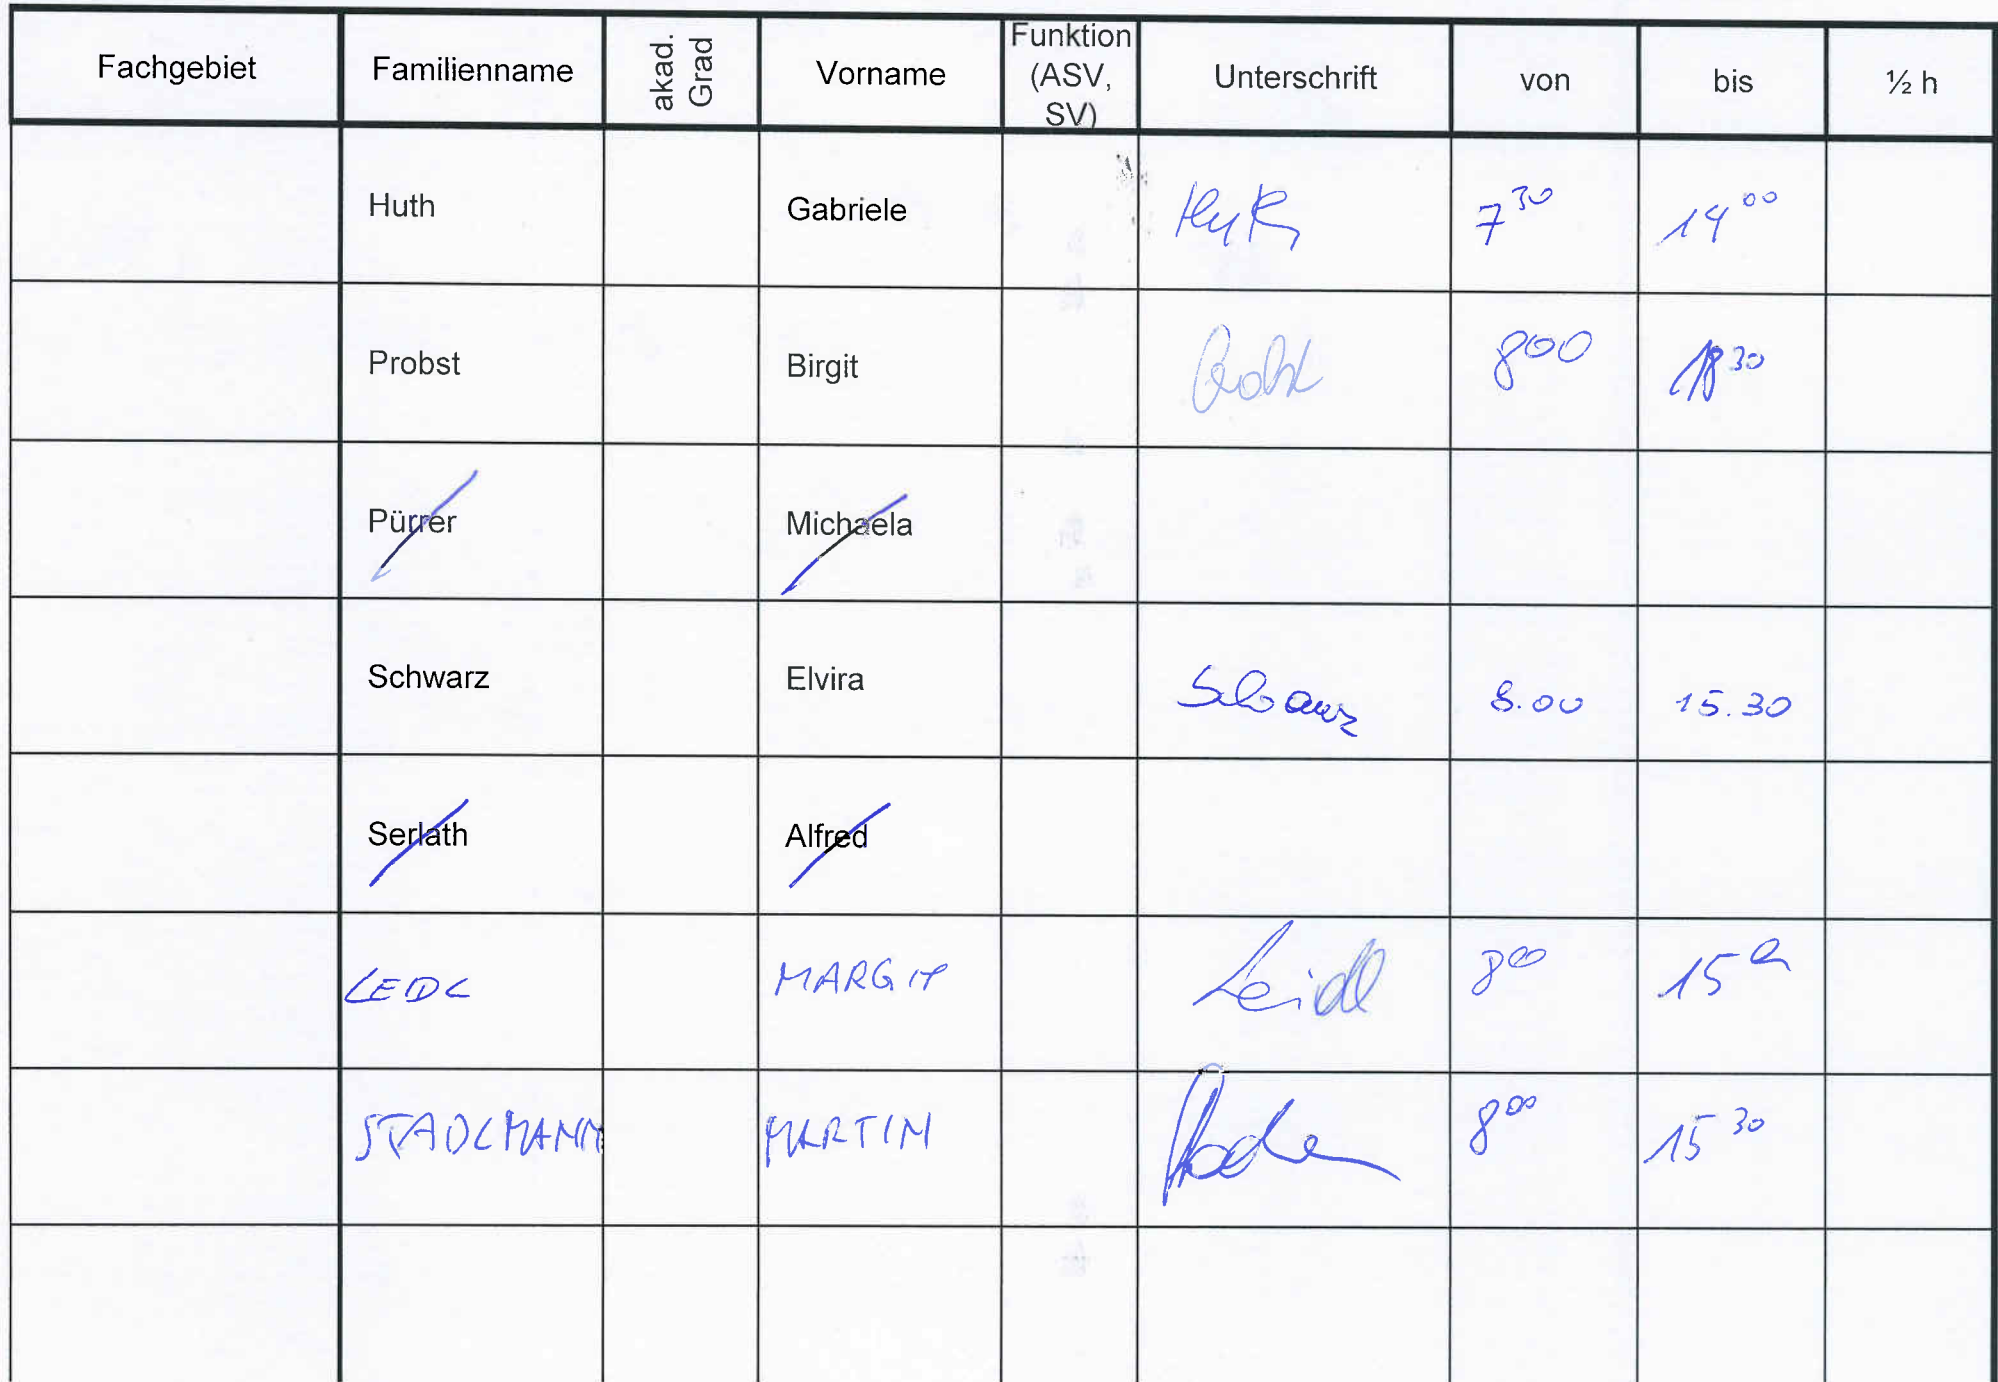 Fachgebiet Familienname akad. Grad Vorname Funktion (ASV, SV) Unterschrift von bis ½ h
Huth Gabriele Huth 7³⁰ 14⁰⁰
Probst Birgit Probst 8⁰⁰ 18³⁰
Pürrer Michaela
Schwarz Elvira Schwarz 8.00 15.30
Serlath Alfred
LEIDL MARGIT Leidl 8⁰⁰ 15
STADLMANN MARTIN 8⁰⁰ 15³⁰